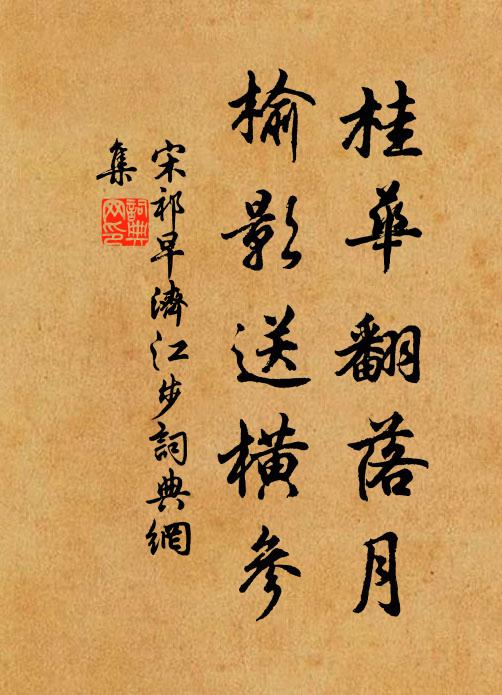 桂華翻落月
榆影送橫參
宋祁早濟江步詞典網
集
詞典
网印